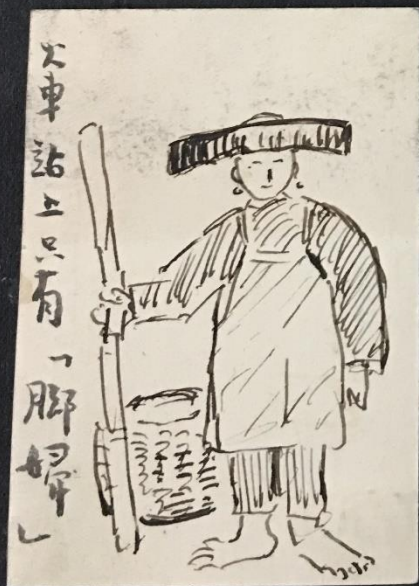 火車站上只有「腳婦」